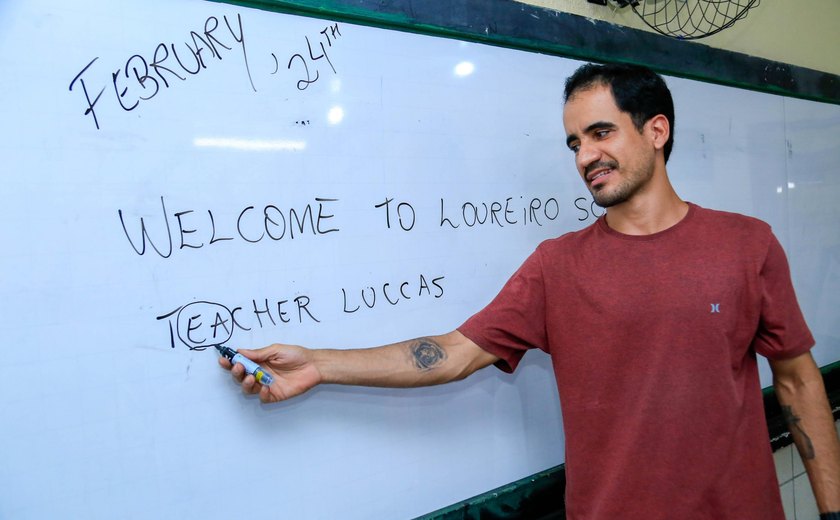 FEBRUARY, 24TH
WELCOME TO LOUREIRO SC
TEACHER LUCCAS